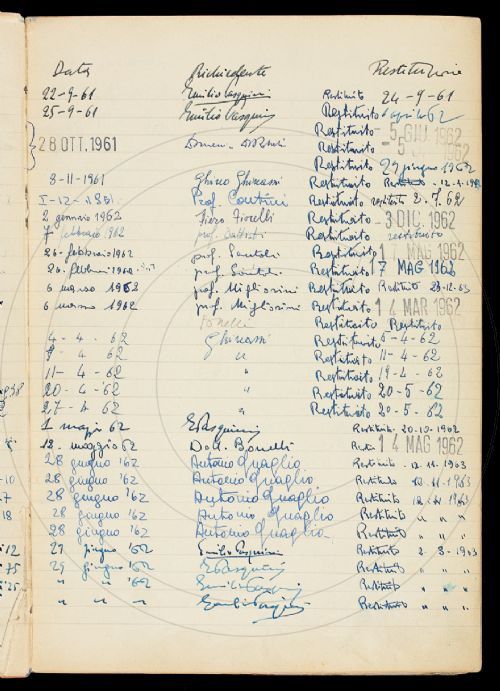 Data Richiedente Restituzione
22-9-61 Emilio Pasquini Restituito 24-9-61
25-9-61 Emilio Pasquini Restituito aprile 62
Restituito 5 GIU 1962
28 OTT. 1961 Restituito
Restituito 29 giugno 1962
8-11-1961 Ghino Ghinassi Restituito
Prof. Contini Restituito restituito 2.7.62
2 gennaio 1962 Piero Fiorelli Restituito 3 DIC. 1962
7 febbraio 1962 prof. Restituito restituito
26 febbraio 1962 prof. Restituito 1 MAG 1962
26 febbraio 1962 prof. Restituito 7 MAG 1962
6 marzo 1962 prof. Migliorini Restituito Restituito 23-12-63
6 marzo 1962 prof. Migliorini Restituito 14 MAR 1962
Bonelli Restituito Restituito
4-4-62 Ghinassi Restituito 6-4-62
9-4-62 " Restituito 11-4-62
11-4-62 " Restituito 19-4-62
20-4-62 " Restituito 20-5-62
27-4-62 " Restituito 20-5-62
1 maggio 62 E. Pasquini Restituito 20-10-1962
12 maggio 62 Dott. Bonelli 14 MAG 1962
28 giugno '62 Antonio Quaglio Restituito 12-11-1963
28 giugno '62 Antonio Quaglio Restituito 12-11-1963
28 giugno '62 Antonio Quaglio Restituito 12-11-1963
28 giugno '62 Antonio Quaglio Restituito " " "
28 giugno '62 Antonio Quaglio Restituito " " "
12 29 giugno '62 Emilio Pasquini Restituito 2-8-1963
75 29 giugno '62 E. Pasquini Restituito " " "
25 " " '62 Emilio Pasquini Restituito " " "
" " " Emilio Pasquini Restituito " " "